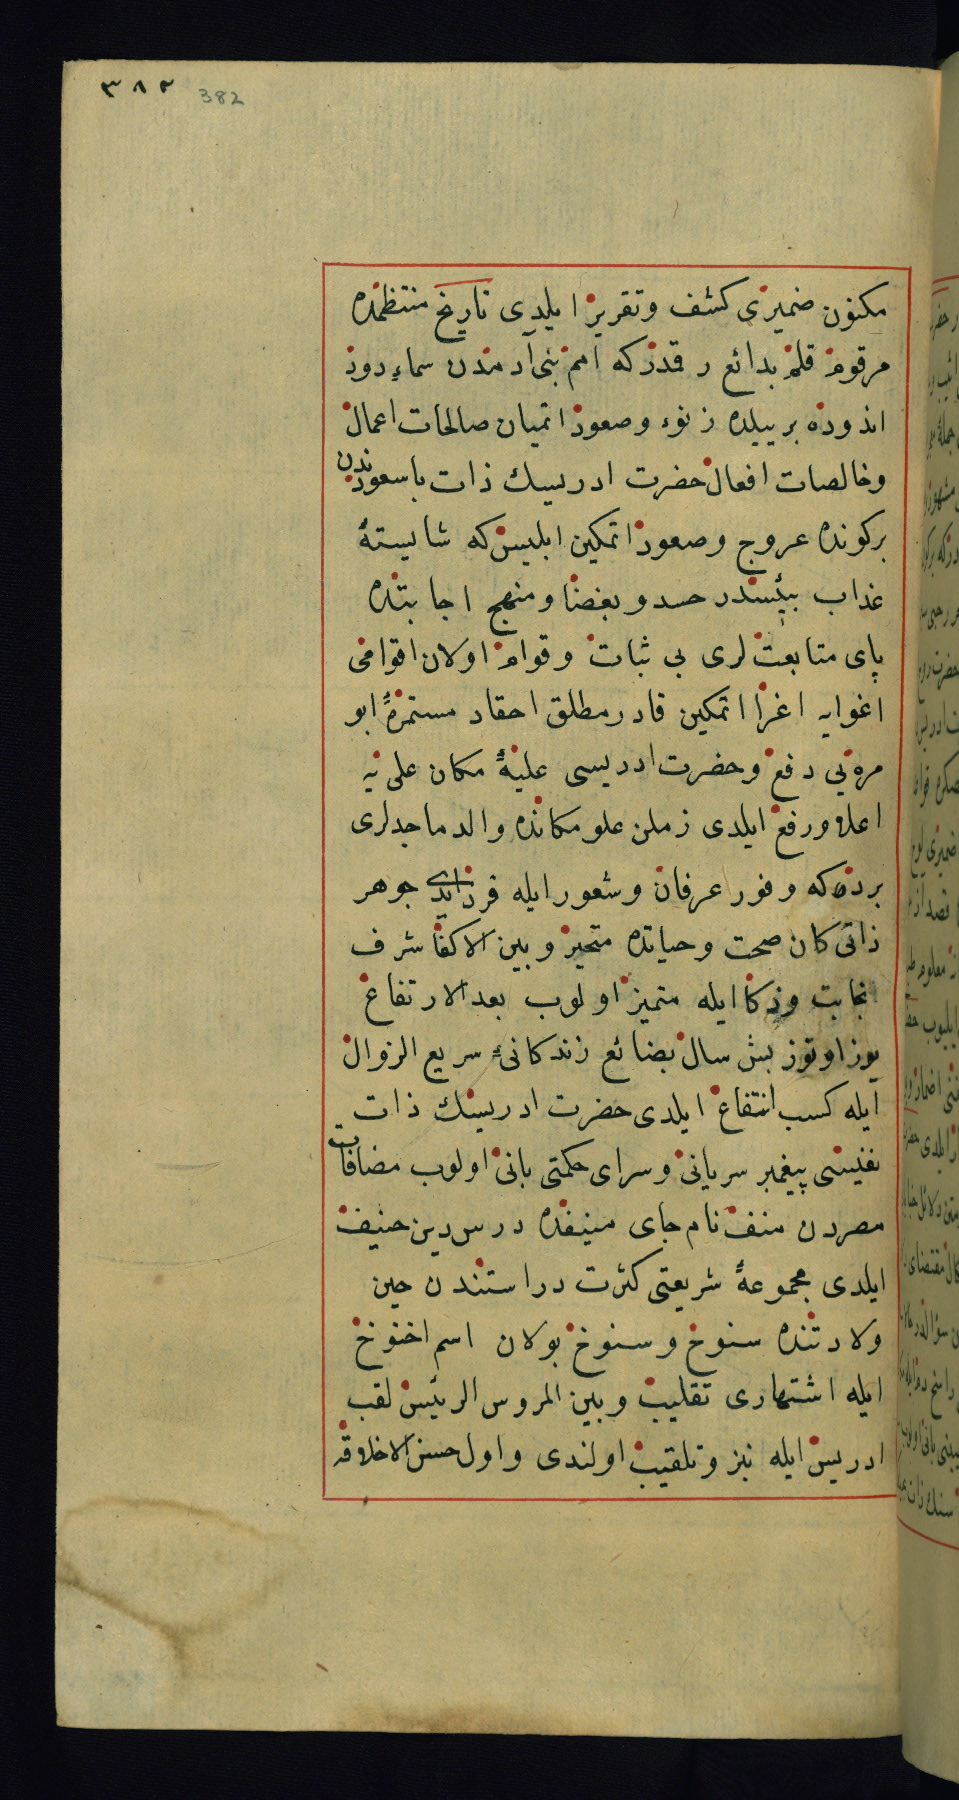 ٣٨٢ 382
مكنون ضميرى كشف وتقرير ايلدى تاريخ منتظمده
مرقوم قلم بدائع رقمدر كه امم بنى آدمدن سماء دود
اندوده بر ييلده زنوء وصعود اتميان صالحات اعمال
وخالصات افعال حضرت ادريسك ذات باسعودندن
بركونده عروج وصعود اتمكين ابليس كه شايستهٔ
عذاب بئيسدر حسد وبغضنا ومنهج اجابتده
پاى متابعت لرى بى ثبات وقوام اولان اقوامى
اغوايه اغرا اتمكين قادر مطلق احقاد مستمرهٔ ابو
مره يى دفع وحضرت ادريسى عليهٔ مكان على يه
اعلا ورفع ايلدى زمان علو مكانده والد ماجدلرى
برده كه وفور عرفان وشعور ايله فرد ايدى جوهر
ذاتى كان صحت وحياتده متحيز وبين الاكفا شرف
نجابت وذكا ايله متميز اولوب بعد الارتفاع
يوز اوتوز بش سال بضائع زندكانىء سريع الزوال
ايله كسب انتفاع ايلدى حضرت ادريسك ذات
نفيسى پيغمبر سريانى وسراى حكمتى بانى اولوب مضافات
مصردن منف نام جاى منيفده درس دين حنيف
ايلدى مجموعهٔ شريعتى كثرت دراستندن حين
ولادتنده سنوخ وسنوخ بولان اسم اخنوخ
ايله اشتهارى تقليب وبين المروس الرئيس لقب
ادريس ايله نبز وتلقيب اولندى واول حسن الاخلاقه